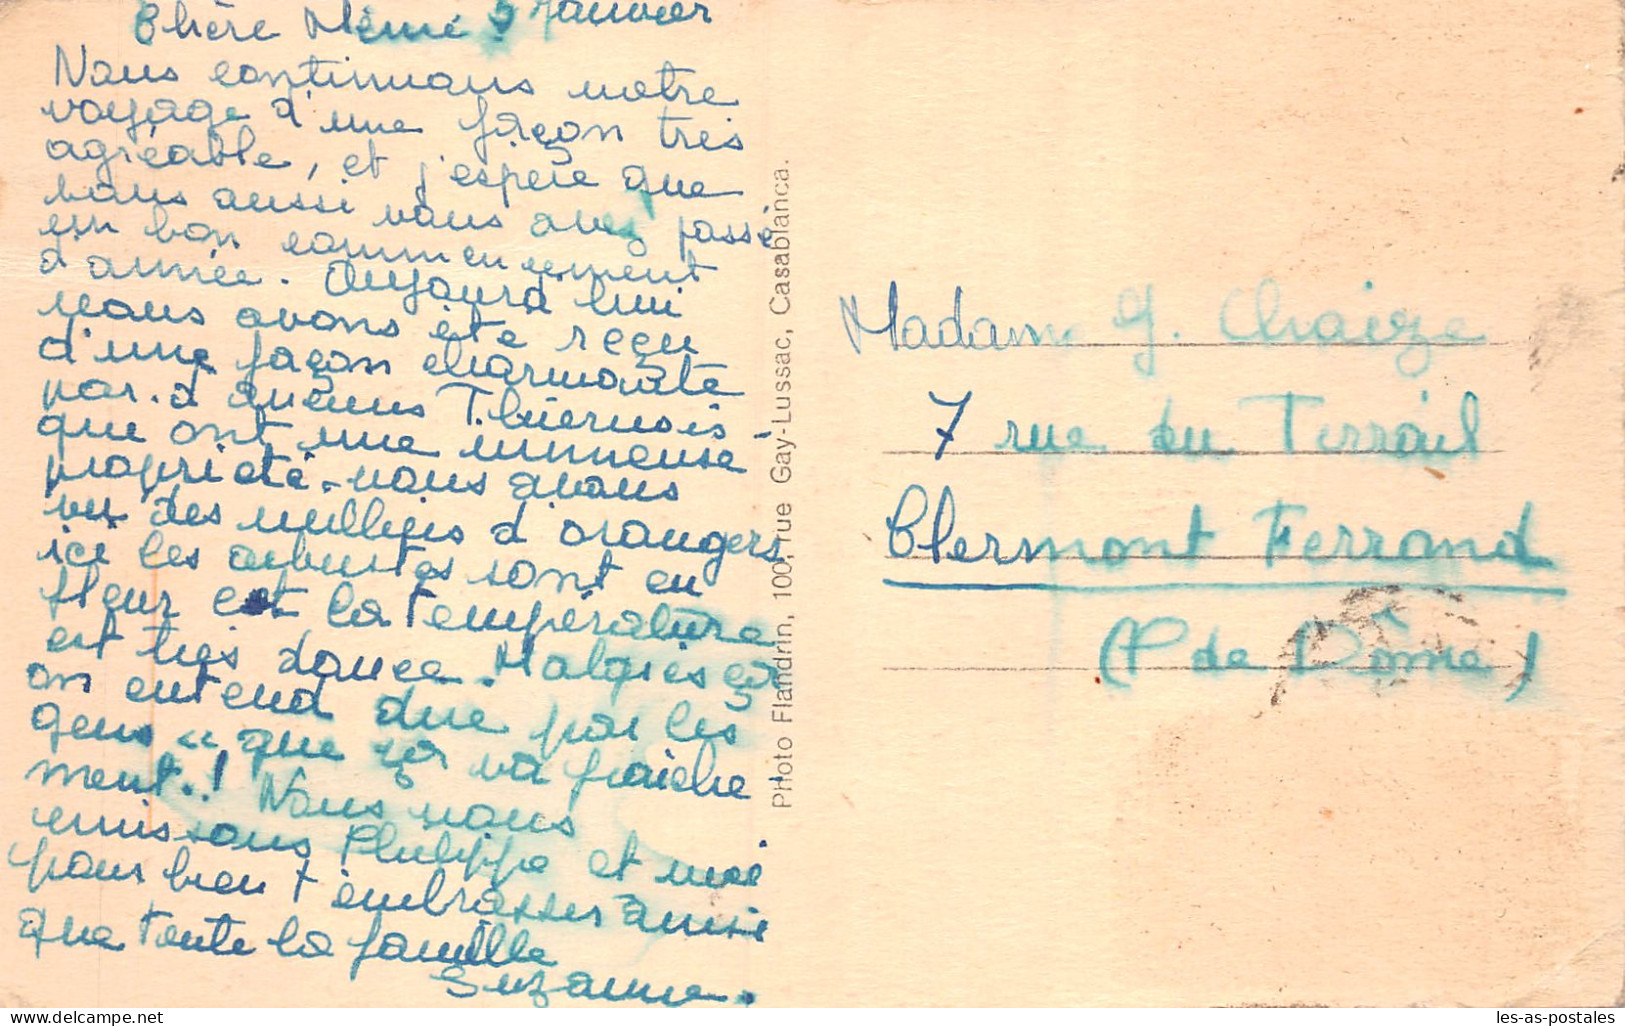 Chère Mémé 9 Janvier
Nous continuons notre
voyage d'une façon très
agréable, et j'espère que
vous aussi vous avez passé
un bon commencement
d'année. Aujourd'hui
nous avons été reçu
d'une façon charmante
par d'
que ont une immense
propriété. nous avons
vu des milliers d'orangers
ici les arbustes sont en
fleur et la température
est très douce. Malgrès ça
on entend dire par les
gens "que ça va fraiche
ment..! Nous nous
unissons Philippe et moi
pour bien t'embrasser ainsi
que toute la famille
Suzanne.
Photo Flandrin, 100, rue Gay-Lussac, Casablanca.
Madame G. Chaize
7 rue du Terrail
Clermont Ferrand
(P de Dôme)
les-as-postales.com